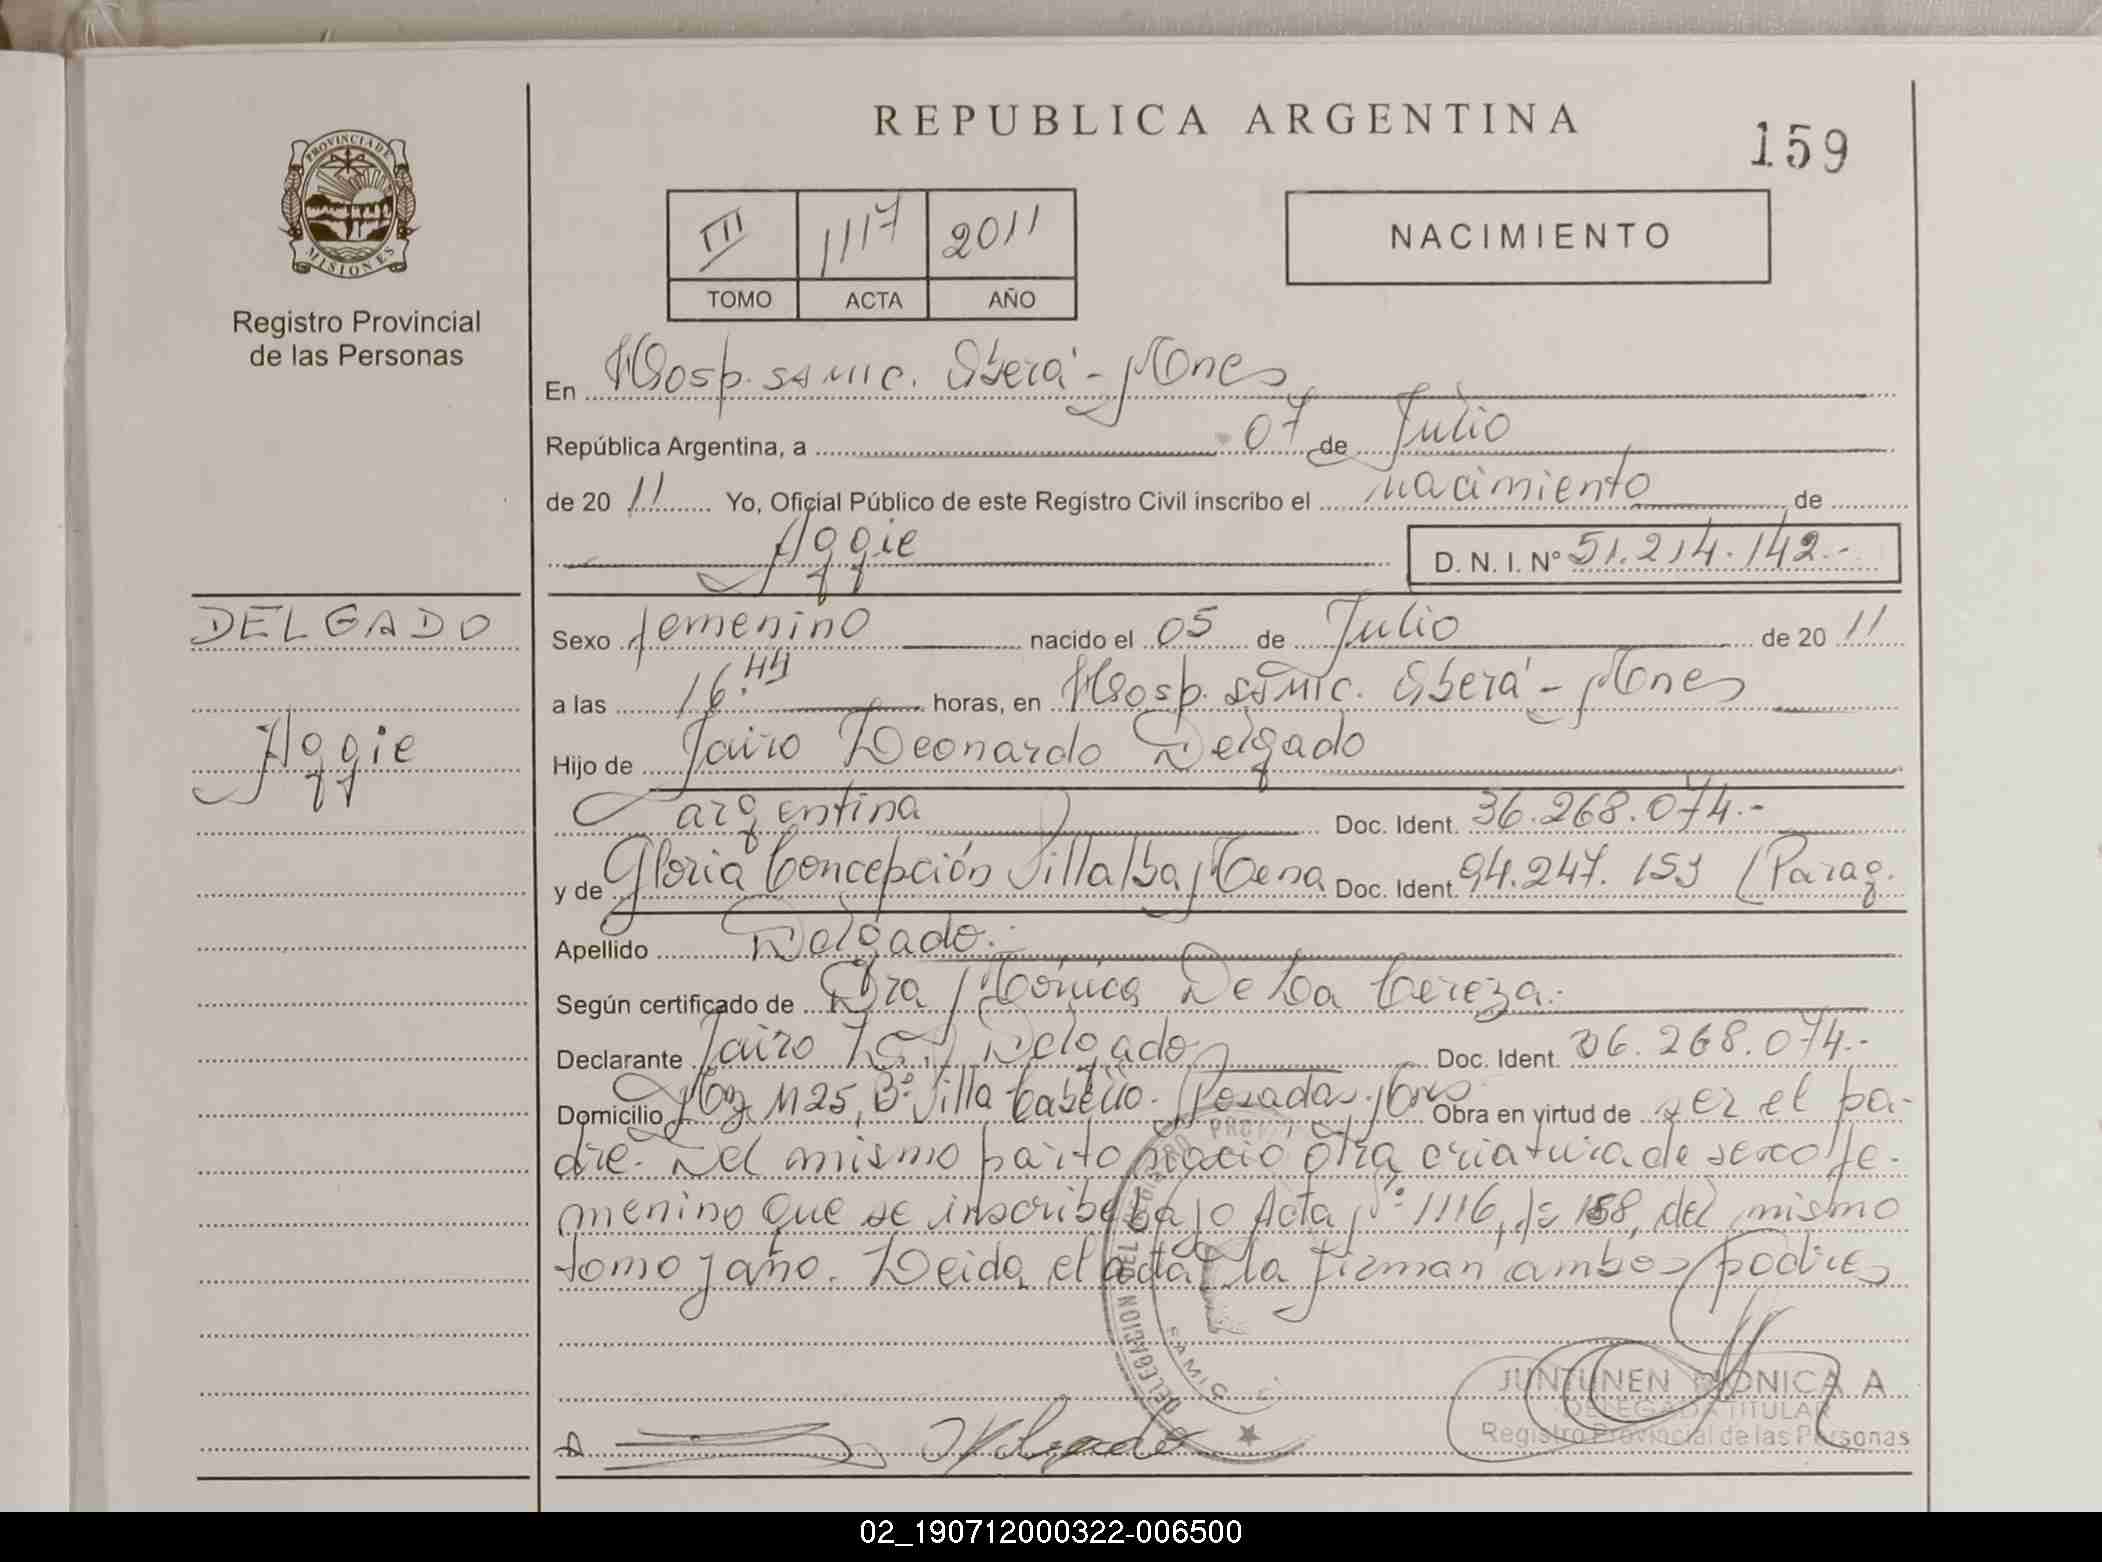 REPUBLICA ARGENTINA
159
PROVINCIA DE
MISIONES
Registro Provincial
de las Personas
III 1117 2011
TOMO ACTA AÑO
NACIMIENTO
En Hosp. SAMIC. Oberá - Mones
República Argentina, a 07 de Julio
de 20 11 Yo, Oficial Público de este Registro Civil inscribo el nacimiento de
Aggie D. N. I. Nº 51.214.142.-
DELGADO
Aggie
Sexo femenino nacido el 05 de Julio de 20 11
a las 16:44 horas, en Hosp. SAMIC. Oberá - Mones
Hijo de Jairo Leonardo Delgado
argentina Doc. Ident. 36.268.074.-
y de Gloria Concepción Villalba Mena Doc. Ident. 94.247.153 (Parag.
Apellido Delgado.-
Según certificado de Dra Mónica De La Cereza.-
Declarante Jairo L. Delgado Doc. Ident. 36.268.074.-
Domicilio Mz M25, Bº Villa Cabello. Posadas. Mnes Obra en virtud de ser el pa-
dre. Del mismo parto nació otra criatura de sexo fe-
menino que se inscribe bajo Acta Nº 1116, Fº 158, del mismo
tomo y año. Leida el acta la firman ambos padres
DELEGACION DEL
SAMIC
Delgado
JUNTUNEN MONICA A
DELEGADA TITULAR
Registro Provincial de las Personas
02_190712000322-006500